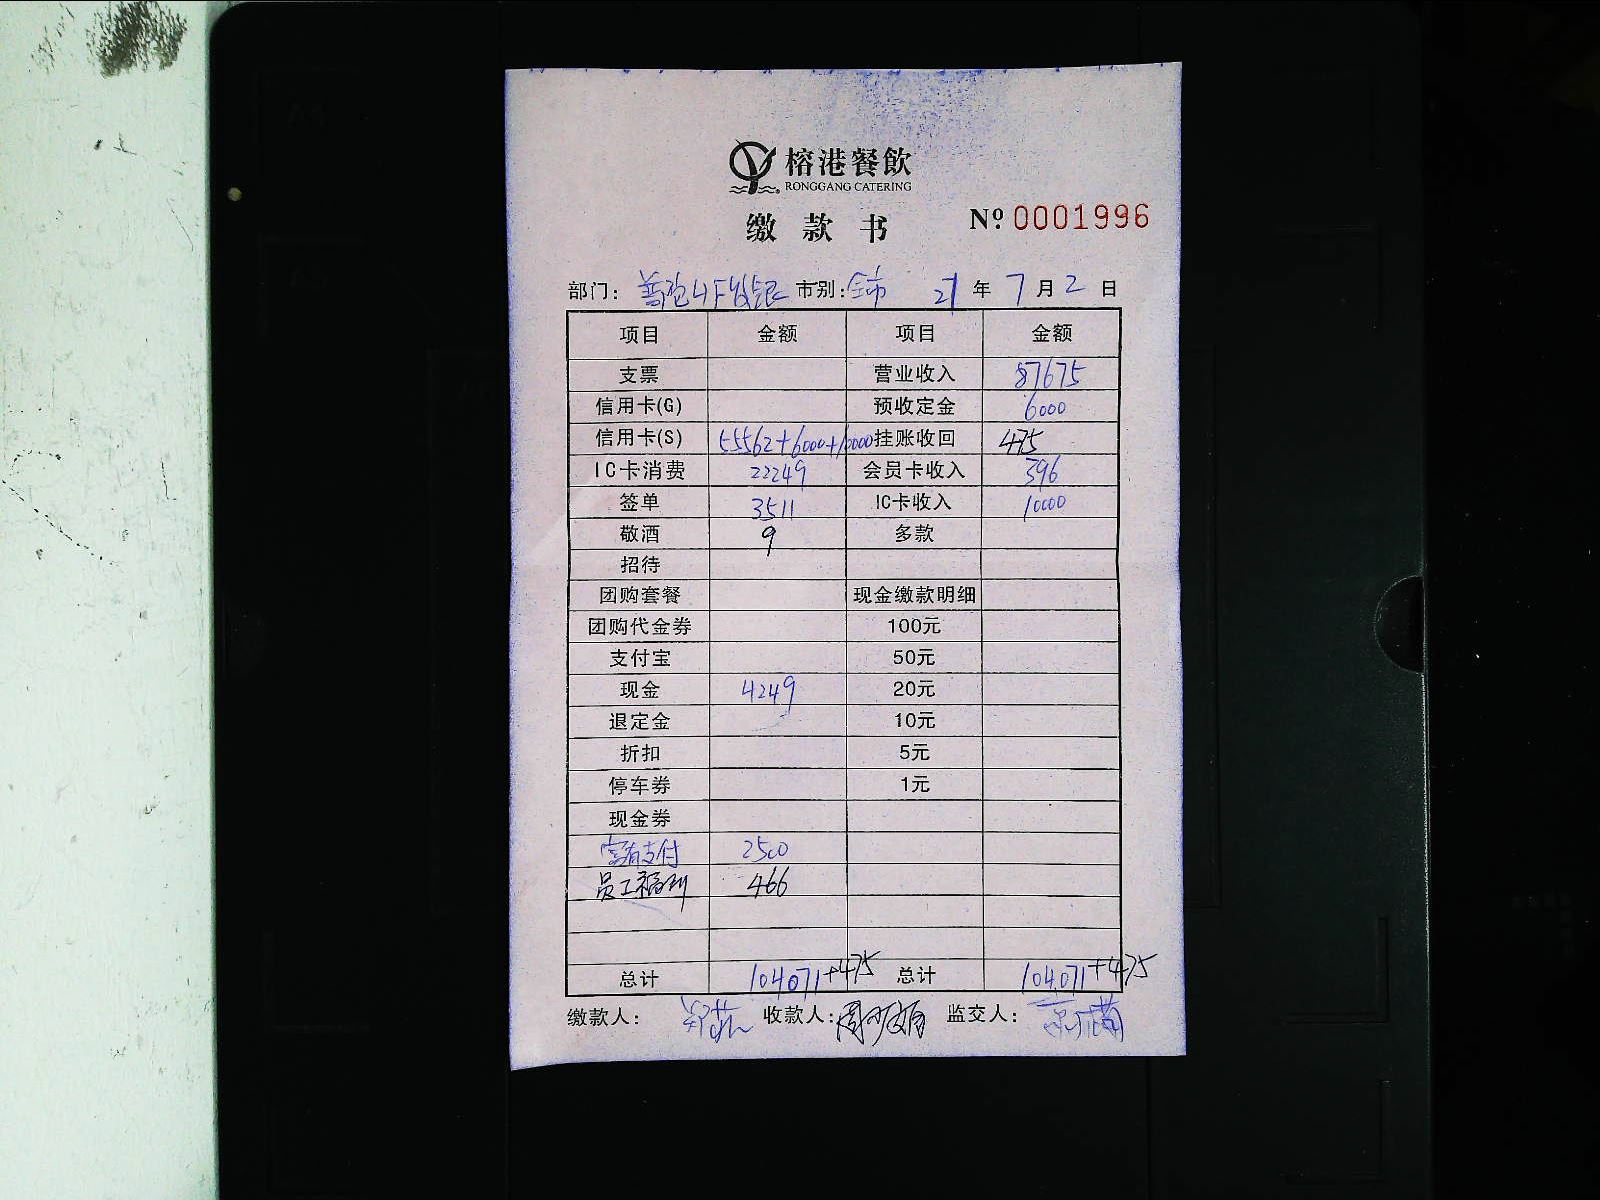 榕港餐飲
RONGGANG CATERING
缴款书 Nº 0001996
部门: 市别:全市 21年7月2日
项目 金额 项目 金额
支票 营业收入 87675
信用卡(G) 预收定金 6000
信用卡(S) 55562+6000+10000 挂账收回 475
IC卡消费 22249 会员卡收入 396
签单 3511 IC卡收入 10000
敬酒 9 多款
招待
团购套餐 现金缴款明细
团购代金券 100元
支付宝 50元
现金 4249 20元
退定金 10元
折扣 5元
停车券 1元
现金券
富有支付 2500
员工福利 466
总计 104071+475 总计 104071+475
缴款人: 收款人: 监交人: